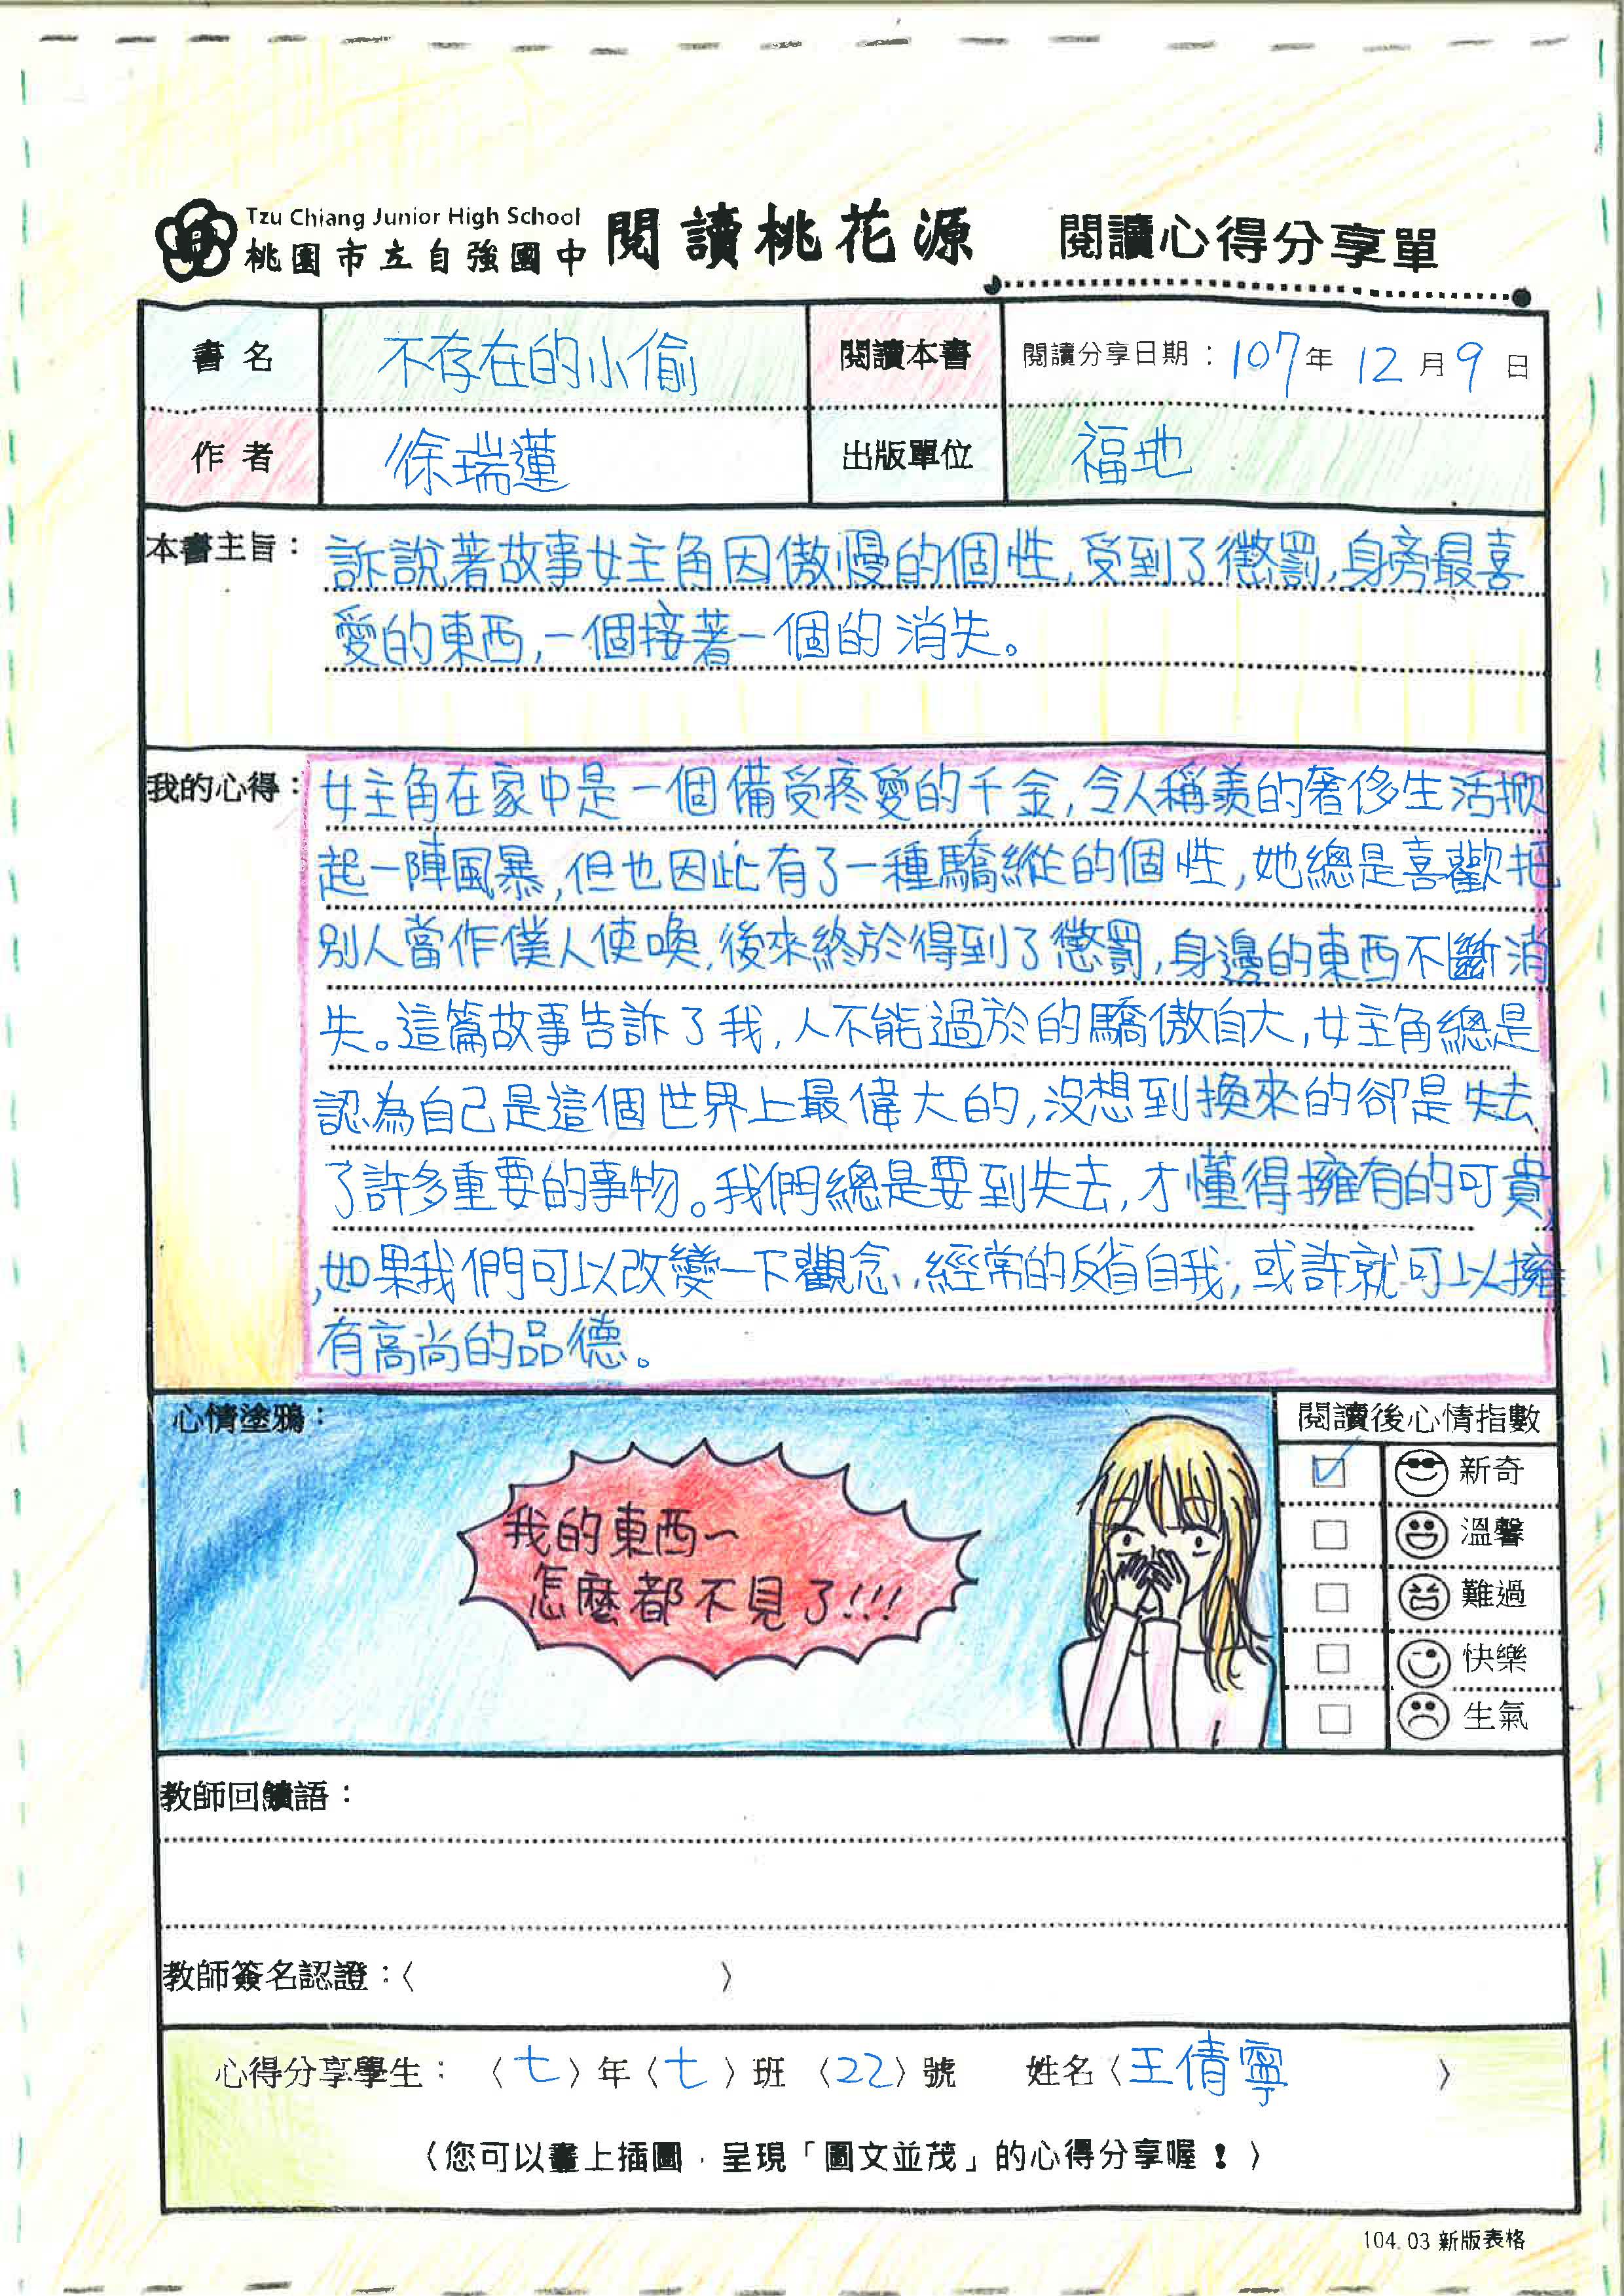 Tzu Chiang Junior High School
桃園市立自強國中 閱讀桃花源 閱讀心得分享單
書名 不存在的小偷 閱讀本書 閱讀分享日期：107年12月9日
作者 徐瑞蓮 出版單位 福地
本書主旨：訴說著故事女主角因傲慢的個性,受到了懲罰,身旁最喜
愛的東西,一個接著一個的消失。
我的心得：女主角在家中是一個備受疼愛的千金,令人稱羨的奢侈生活掀
起一陣風暴,但也因此有了一種驕縱的個性,她總是喜歡把
別人當作僕人使喚,後來終於得到了懲罰,身邊的東西不斷消
失。這篇故事告訴了我,人不能過於的驕傲自大,女主角總是
認為自己是這個世界上最偉大的,沒想到換來的卻是失去
了許多重要的事物。我們總是要到失去,才懂得擁有的可貴,
,如果我們可以改變一下觀念,經常的反省自我,或許就可以擁
有高尚的品德。
心情塗鴉：
我的東西~
怎麼都不見了!!!
閱讀後心情指數
新奇
溫馨
難過
快樂
生氣
教師回饋語：
教師簽名認證：〈 〉
心得分享學生：〈七〉年〈七〉班〈22〉號 姓名〈王倩寧 〉
〈您可以畫上插圖，呈現「圖文並茂」的心得分享喔！〉
104.03 新版表格